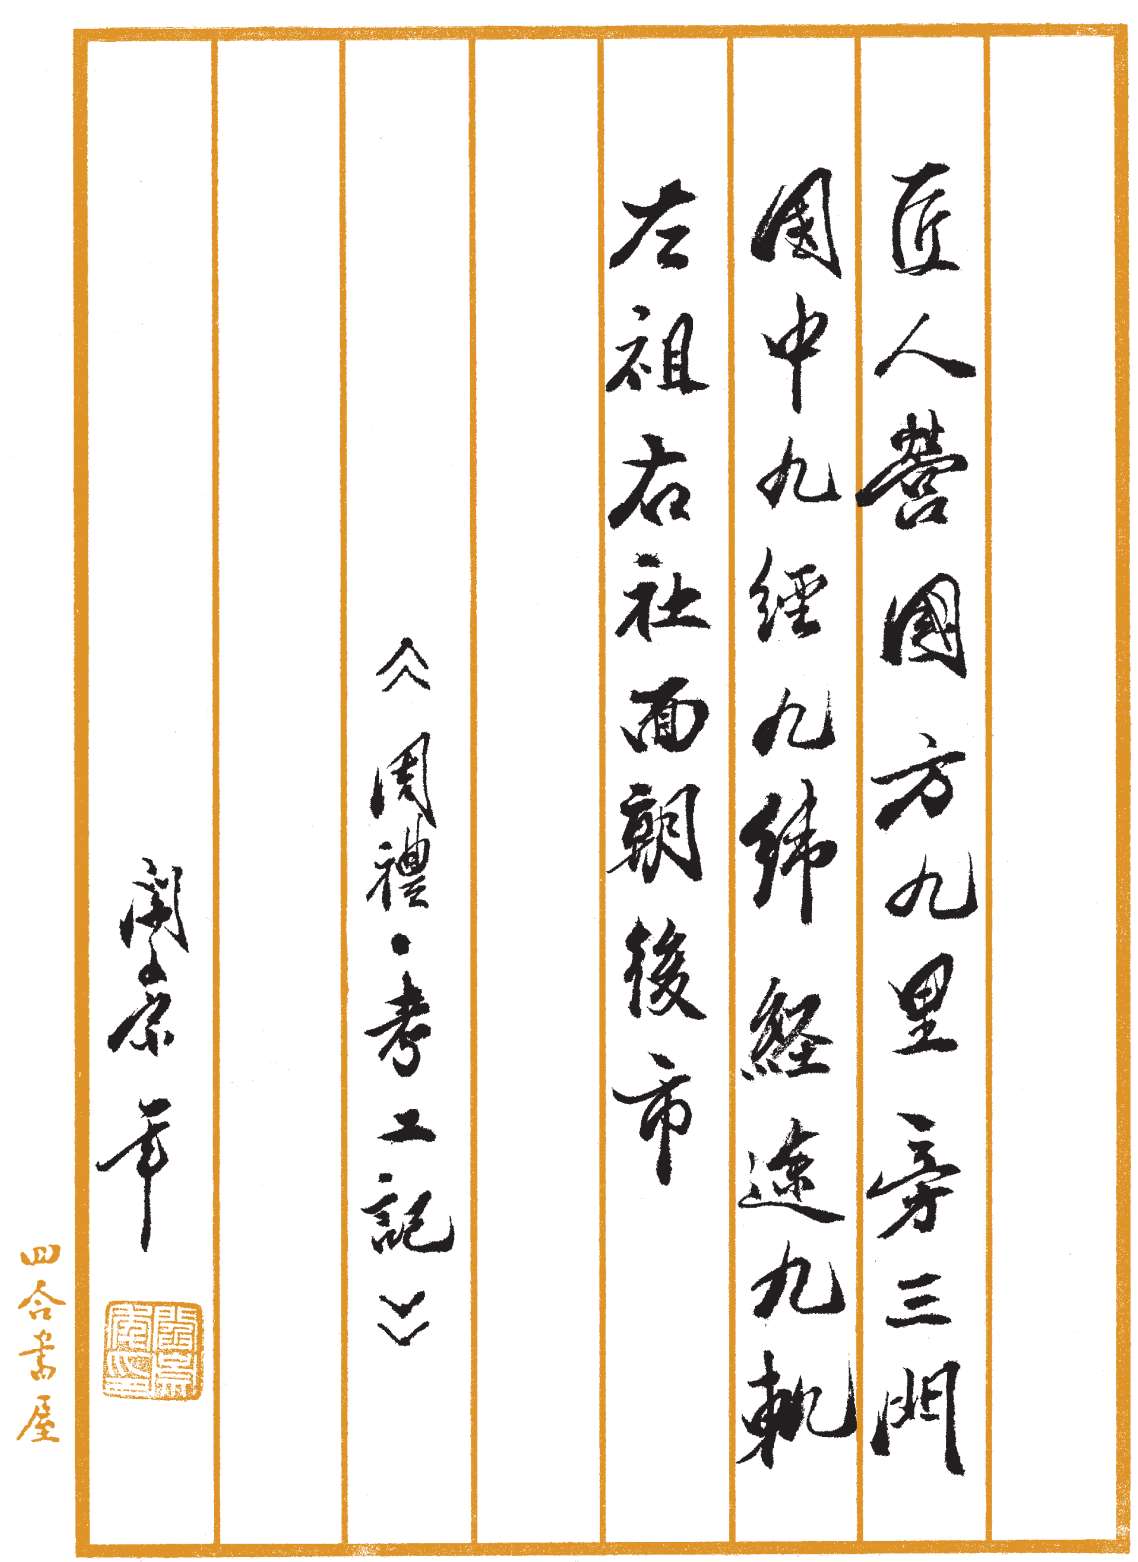 匠人營國方九里旁三門
國中九經九緯經途九軌
左祖右社面朝後市
《周禮·考工記》
閻崇年
四合書屋